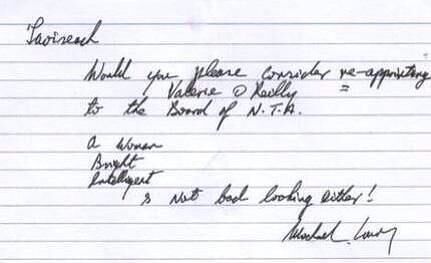 Taoiseach
Would you please consider re-appointing
Valerie O Reilly =
to the Board of N.T.A.
a woman
Bright
Intelligent
& not bad looking either!
Michael Lowry